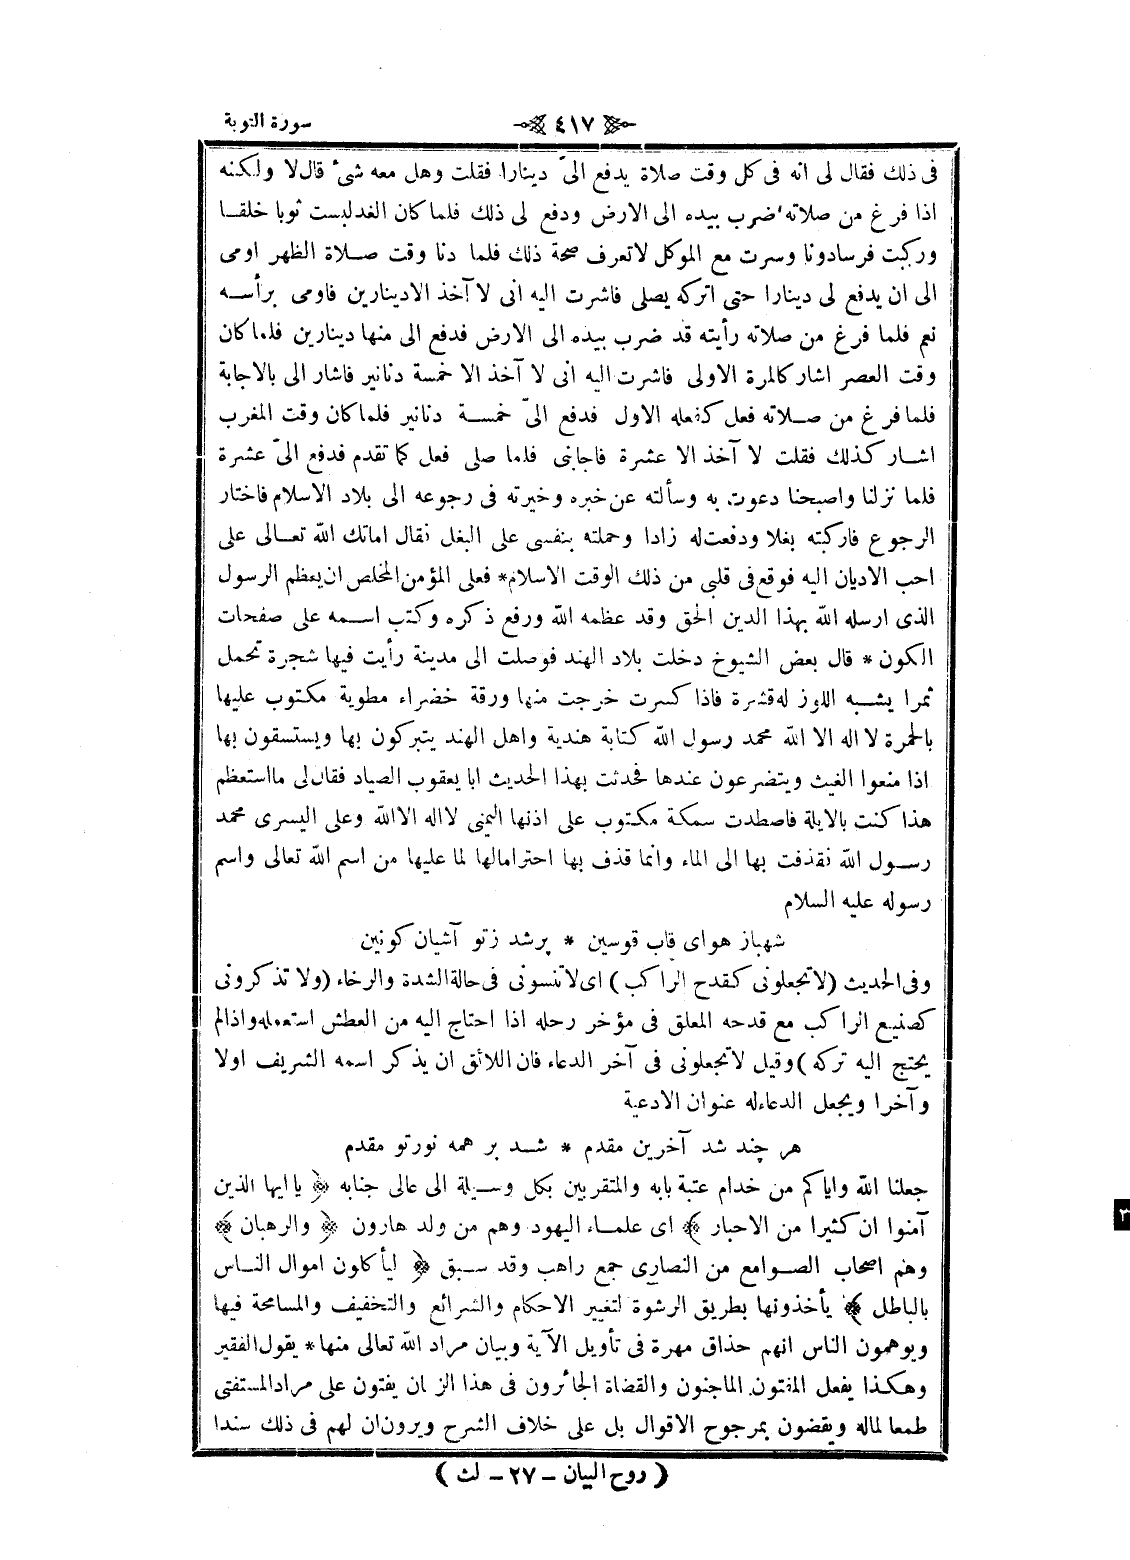 سورة التوبة ٤١٧
فى ذلك فقال لى انه فى كل وقت صلاة يدفع الىّ دينارا فقلت وهل معه شئ قال لا ولكنه
اذا فرغ من صلاته ضرب بيده الى الارض ودفع لى ذلك فلما كان الغد لبست ثوبا خلقا
وركبت فرسا دونا وسرت مع الموكل لاتعرف صحة ذلك فلما دنا وقت صلاة الظهر اومى
الى ان يدفع لى دينارا حتى اتركه يصلى فاشرت اليه انى لا آخذ الادينارين فاومى برأسه
نعم فلما فرغ من صلاته رأيته قد ضرب بيده الى الارض فدفع الى منها دينارين فلما كان
وقت العصر اشار كالمرة الاولى فاشرت اليه انى لا آخذ الا خمسة دنانير فاشار الى بالاجابة
فلما فرغ من صلاته فعل كفعله الاول فدفع الىّ خمسة دنانير فلما كان وقت المغرب
اشار كذلك فقلت لا آخذ الا عشرة فاجابى فلما صلى فعل كما تقدم فدفع الىّ عشرة
فلما نزلنا واصبحنا دعوت به وسألته عن خبره وخيرته فى رجوعه الى بلاد الاسلام فاختار
الرجوع فاركبته بغلا ودفعت له زادا وحملته بنفسى على البغل فقال اماتك الله تعالى على
احب الاديان اليه فوقع فى قلبى من ذلك الوقت الاسلام* فعلى المؤمن المخلص ان يعظم الرسول
الذى ارسله الله بهذا الدين الحق وقد عظمه الله ورفع ذكره وكتب اسمه على صفحات
الكون * قال بعض الشيوخ دخلت بلاد الهند فوصلت الى مدينة رأيت فيها شجرة تحمل
ثمرا يشبه اللوز له قشرة فاذا كسرت خرجت منها ورقة خضراء مطوية مكتوب عليها
بالحمرة لا اله الا الله محمد رسول الله كتابة هندية واهل الهند يتبركون بها ويستسقون بها
اذا منعوا الغيث ويتضرعون عندها فحدثت بهذا الحديث ابا يعقوب الصياد فقال لى ما استعظم
هذا كنت بالايلة فاصطدت سمكة مكتوب على اذنها اليمنى لا اله الا الله وعلى اليسرى محمد
رسول الله فقذفت بها الى الماء وانما قذف بها احتراما لها لما عليها من اسم الله تعالى واسم
رسوله عليه السلام
شهباز هواى قاب قوسين * پرشد زتو آشيان كونين
وفى الحديث (لا تجعلونى كقدح الراكب) اى لا تنسونى فى حالة الشدة والرخاء (ولا تذكرونى
كصنيع الراكب مع قدحه المعلق فى مؤخر رحله اذا احتاج اليه من العطش استعمله واذا لم
يحتج اليه تركه) وقيل لا تجعلونى فى آخر الدعاء فان اللائق ان يذكر اسمه الشريف اولا
وآخرا ويجعل الدعاء له عنوان الادعية
هر چند شد آخرين مقدم * شد بر همه نورتو مقدم
جعلنا الله واياكم من خدام عتبة بابه والمتقربين بكل وسيلة الى عالى جنابه ﴿ يا ايها الذين
آمنوا ان كثيرا من الاحبار ﴾ اى علماء اليهود وهم من ولد هارون ﴿ والرهبان ﴾
وهم اصحاب الصوامع من النصارى جمع راهب وقد سبق ﴿ ليأكلون اموال الناس
بالباطل ﴾ يأخذونها بطريق الرشوة لتغيير الاحكام والشرائع والتخفيف والمسامحة فيها
ويوهمون الناس انهم حذاق مهرة فى تأويل الآية وبيان مراد الله تعالى منها* يقول الفقير
وهكذا يفعل المفتون الماجنون والقضاة الجائرون فى هذا الزمان يفتون على مراد المستفتى
طمعا لماله ويقضون بمرجوح الاقوال بل على خلاف الشرح ويرون ان لهم فى ذلك سندا
( روح البيان – ٢٧ – لث )
٣